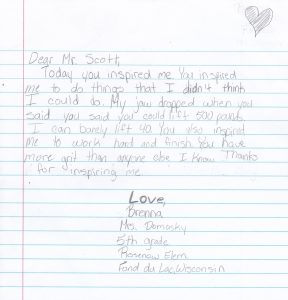 Dear Mr. Scott,
Today you inspired me. You inspired
me to do things that I didn't think
I could do. My jaw dropped when you
said you said you could lift 500 pounds
I can barely lift 40. You also inspired
me to work hard and finish. You have
more grit than anyone else I know. Thanks
for inspiring me.
Love,
Brenna
Mrs. Domasky
5th grade
Rosenow Elem.
Fond du Lac, Wisconsin